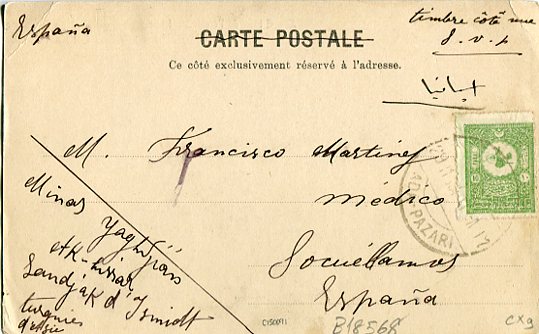 España
timbre côté vue
S. v. p.
CARTE POSTALE
Ce côté exclusivement réservé à l'adresse.
اسبانيا
M. Francisco Martinez
Médico
Socuéllamos
España
ADA PAZARI
Minas Yaghdjian
Ak-hissar
Sandjak d'Ismidt
turquie
d'Asie
B18568
cx9